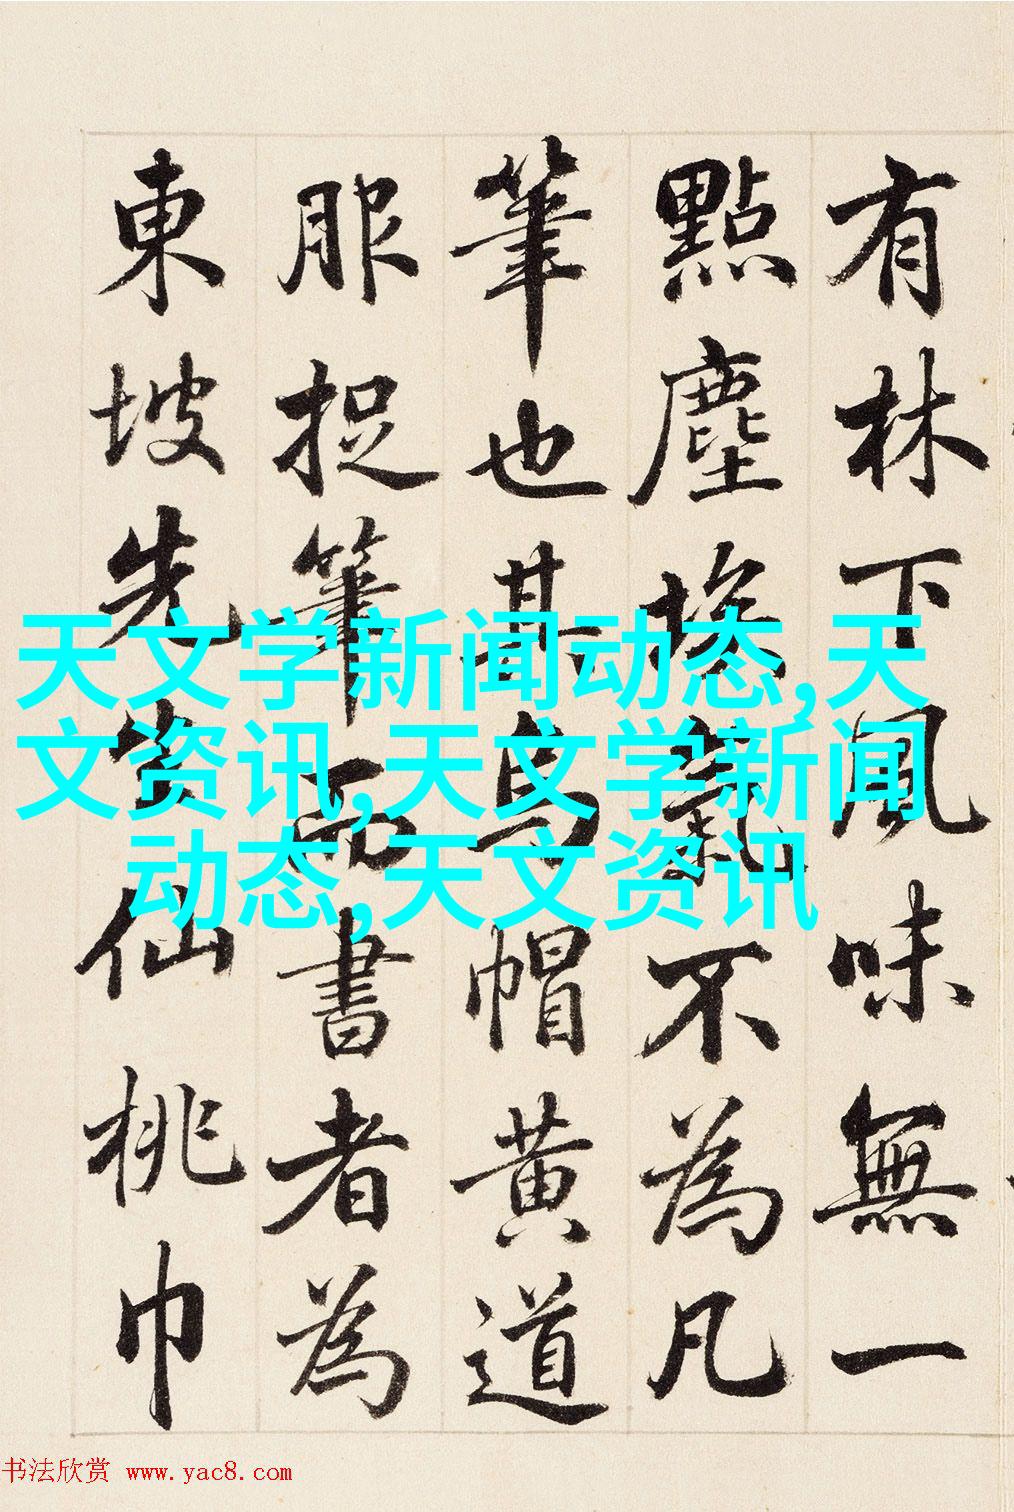 有林下風味無一
點塵埃氣不為凡
筆也其烏帽黃道
服捉筆而書者為
東坡先生仙桃巾
天文学新闻动态,天
文资讯,天文学新闻
动态,天文资讯
书法欣赏 www.yac8.com